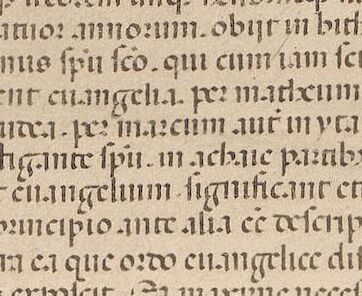 atuor annorum. obijt in bit
nus sp̄u sc̄o. qui cum iam sc
ent euangelia. per matheum
udea. per marcum aut̄ in yta
tigante sp̄u. in achaie partib
t euangelium. significant et
principio ante alia ee̅ descrip
ra ea que ordo euangelice dis
exposcit